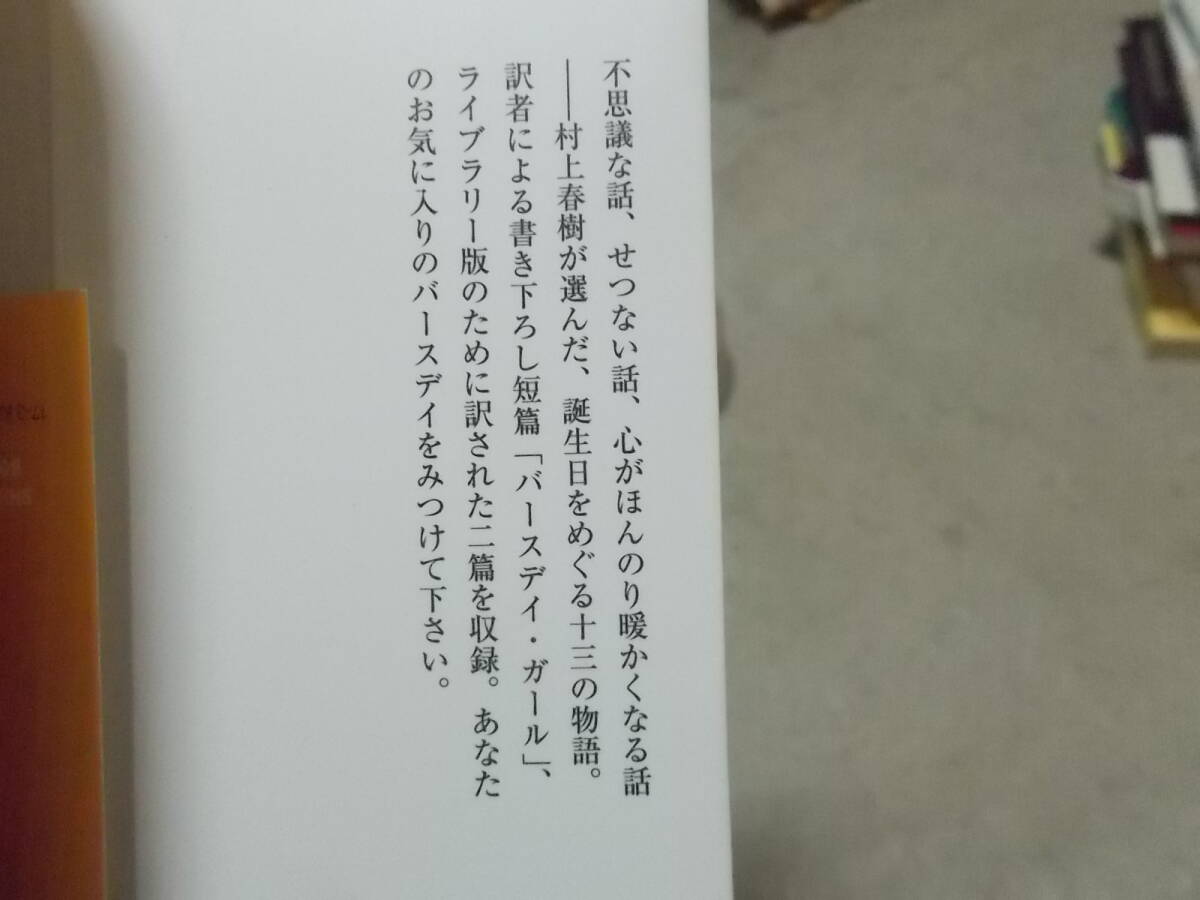 不思議な話、せつない話、心がほんのり暖かくなる話
――村上春樹が選んだ、誕生日をめぐる十三の物語。
訳者による書き下ろし短篇「バースデイ・ガール」、
ライブラリー版のために訳された二篇を収録。あなた
のお気に入りのバースデイをみつけて下さい。